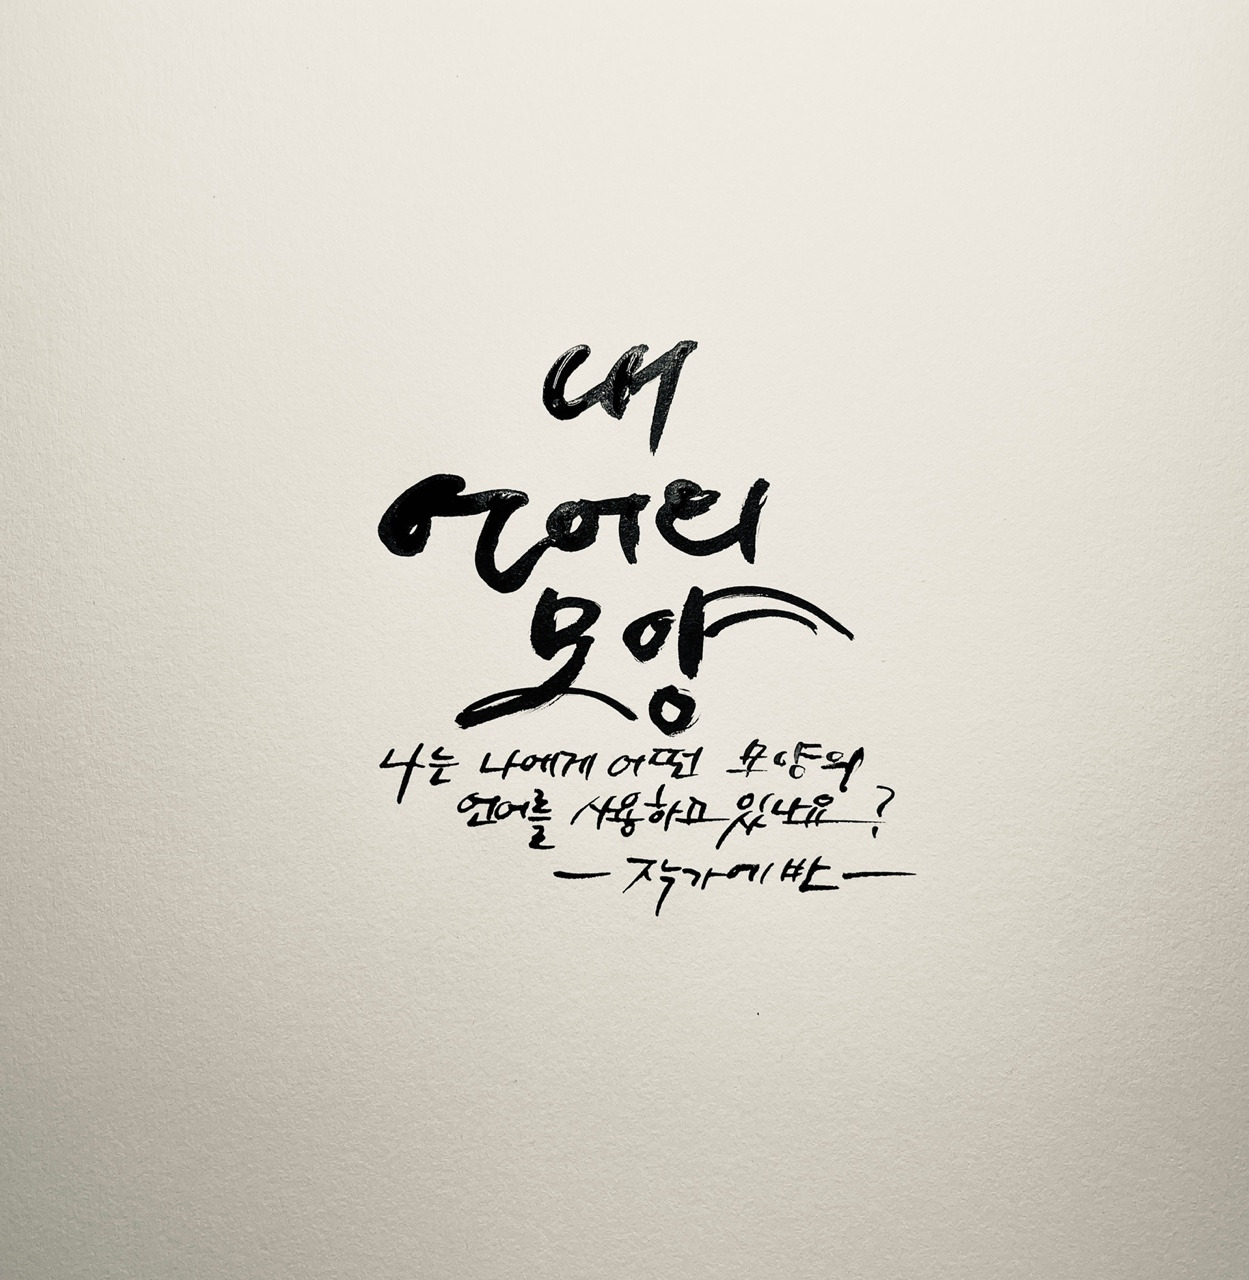 내
언어의
모양
나는 나에게 어떤 모양의
언어를 사용하고 있나요?
— 작가에반 —